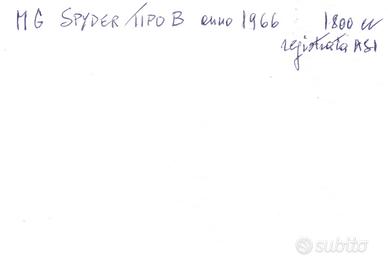 MG SPYDER TIPO B anno 1966 : 1800 cc
registrata ASI
subito